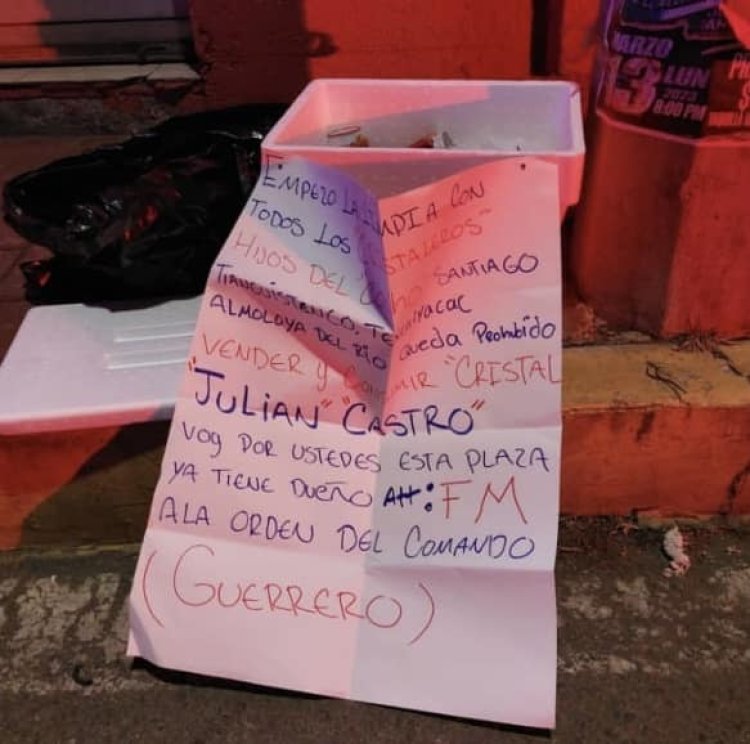 EMPEZO LA CON
TODOS LOS
HIJOS DEL SANTIAGO
TIANGUISTENCO,
ALMOLOYA DEL RIO QUEDA PROHIBIDO
VENDER Y "CRISTAL
"JULIAN" "CASTRO"
VOY POR USTEDES ESTA PLAZA
YA TIENE DUEÑO Att: FM
ALA ORDEN DEL COMANDO
(GUERRERO)
MARZO
13 LUN
2023
8:00 PM